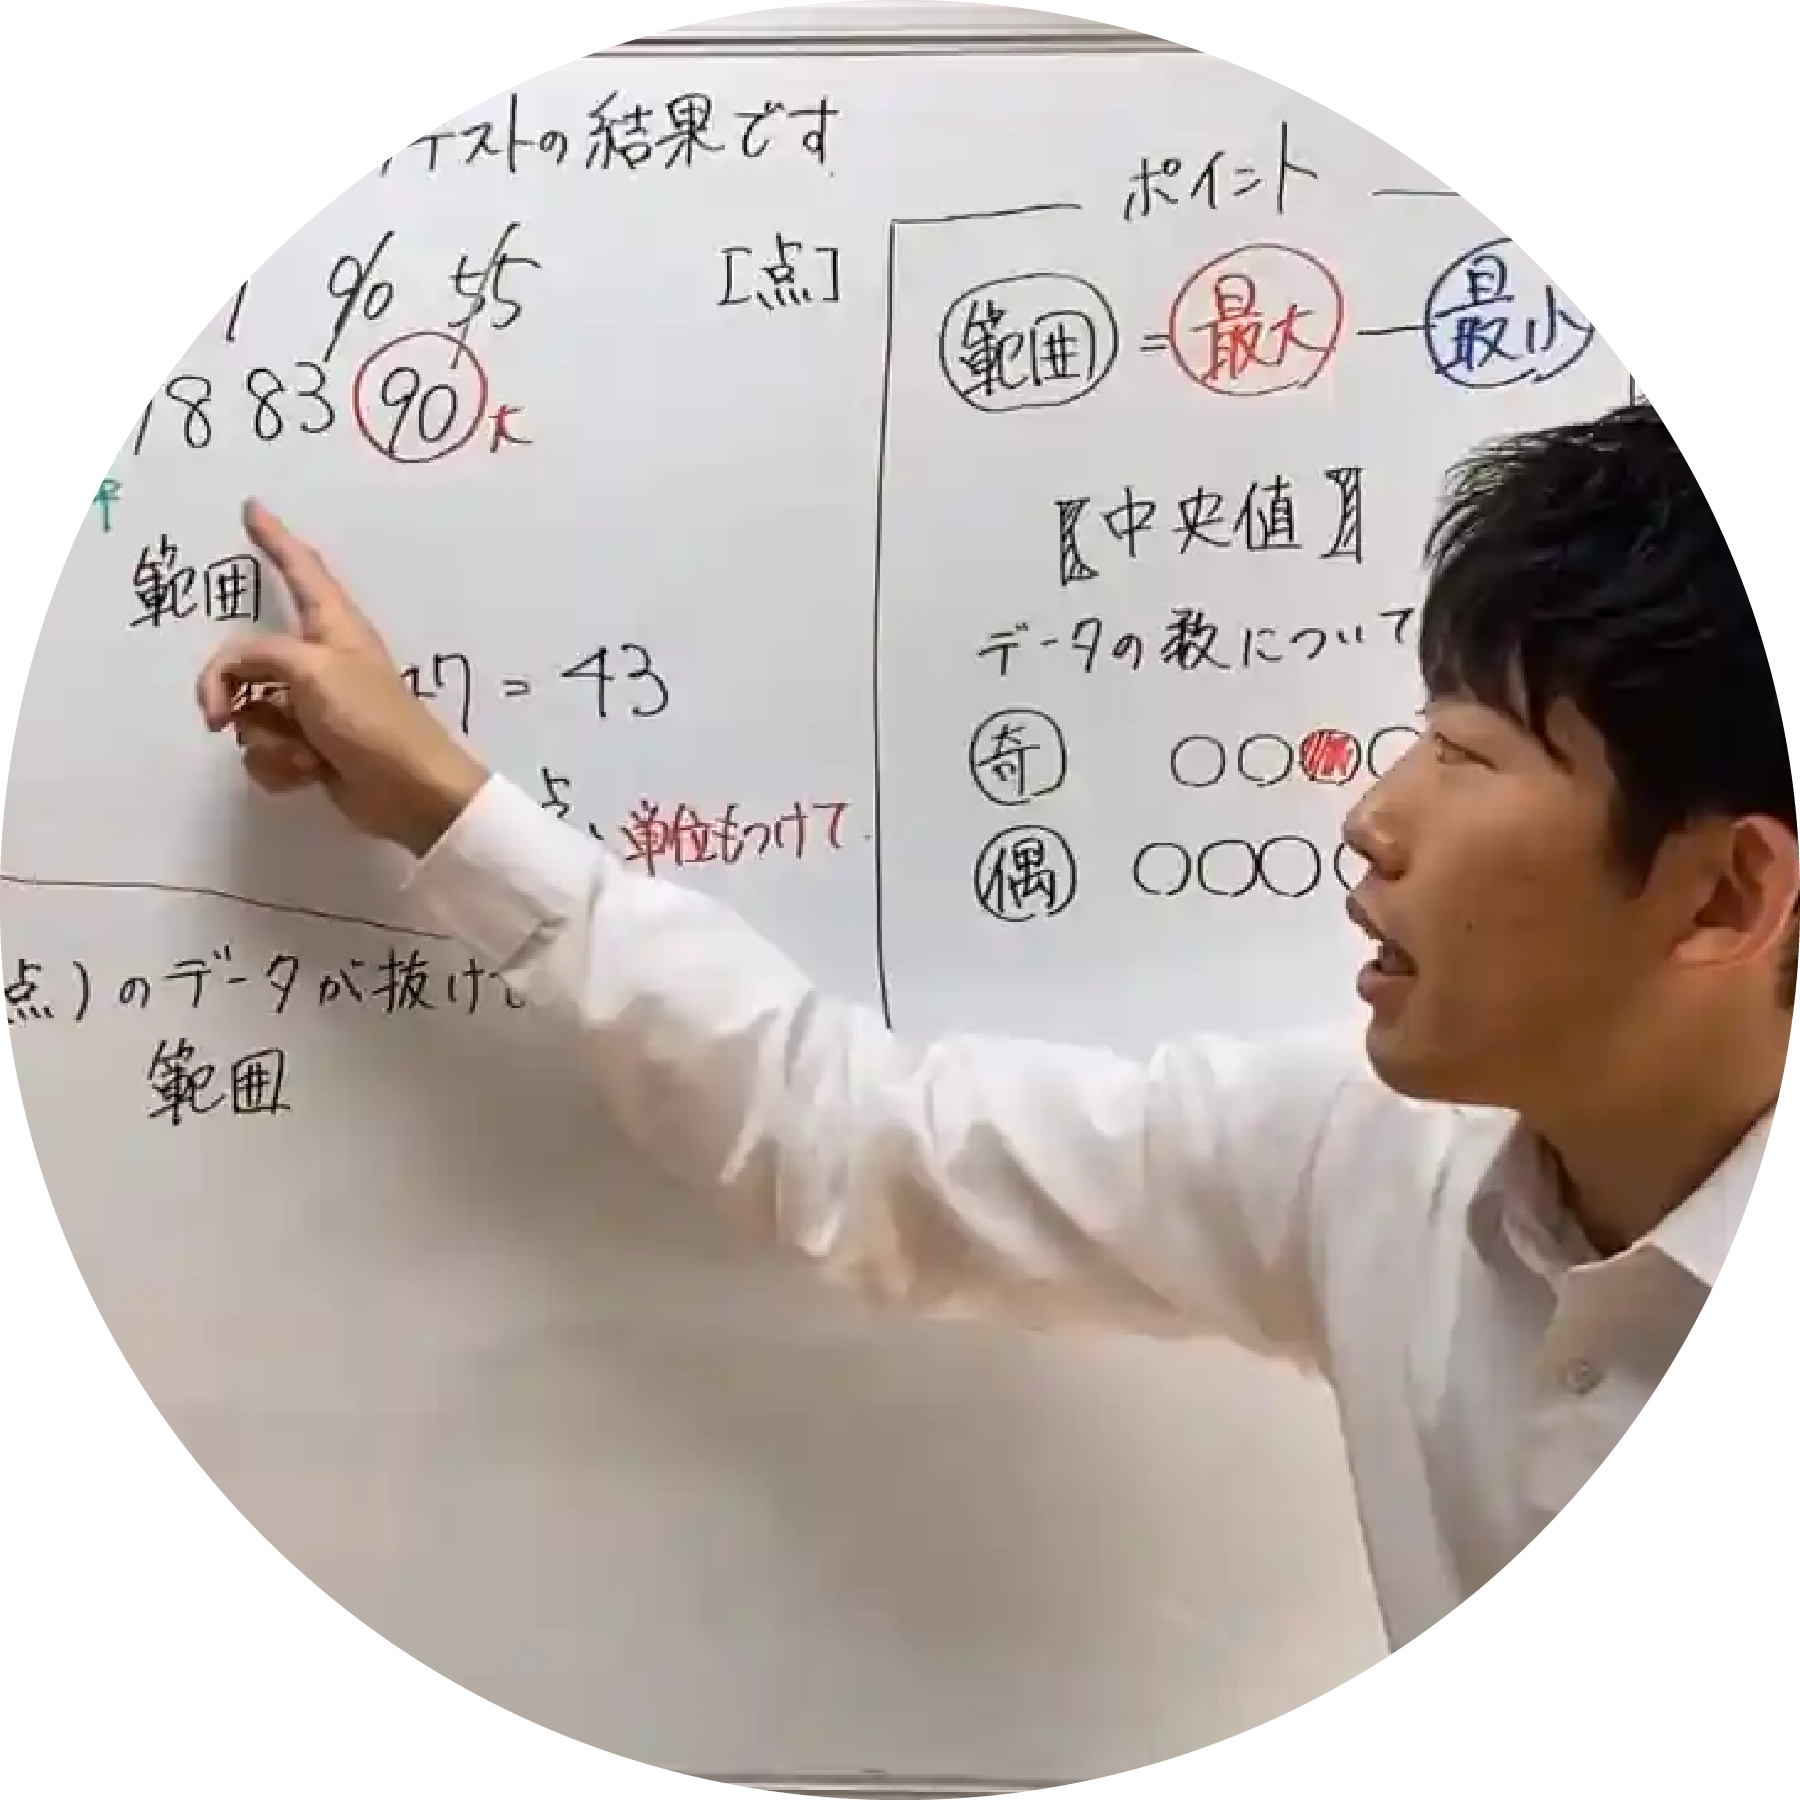 テストの結果です
1 90 55 [点]
78 83 90 大
範囲
47 = 43
点、単位もつけて
点)のデータが抜けて
範囲
ポイント
範囲 = 最大 — 最小
【中央値】
データの数について
奇
偶